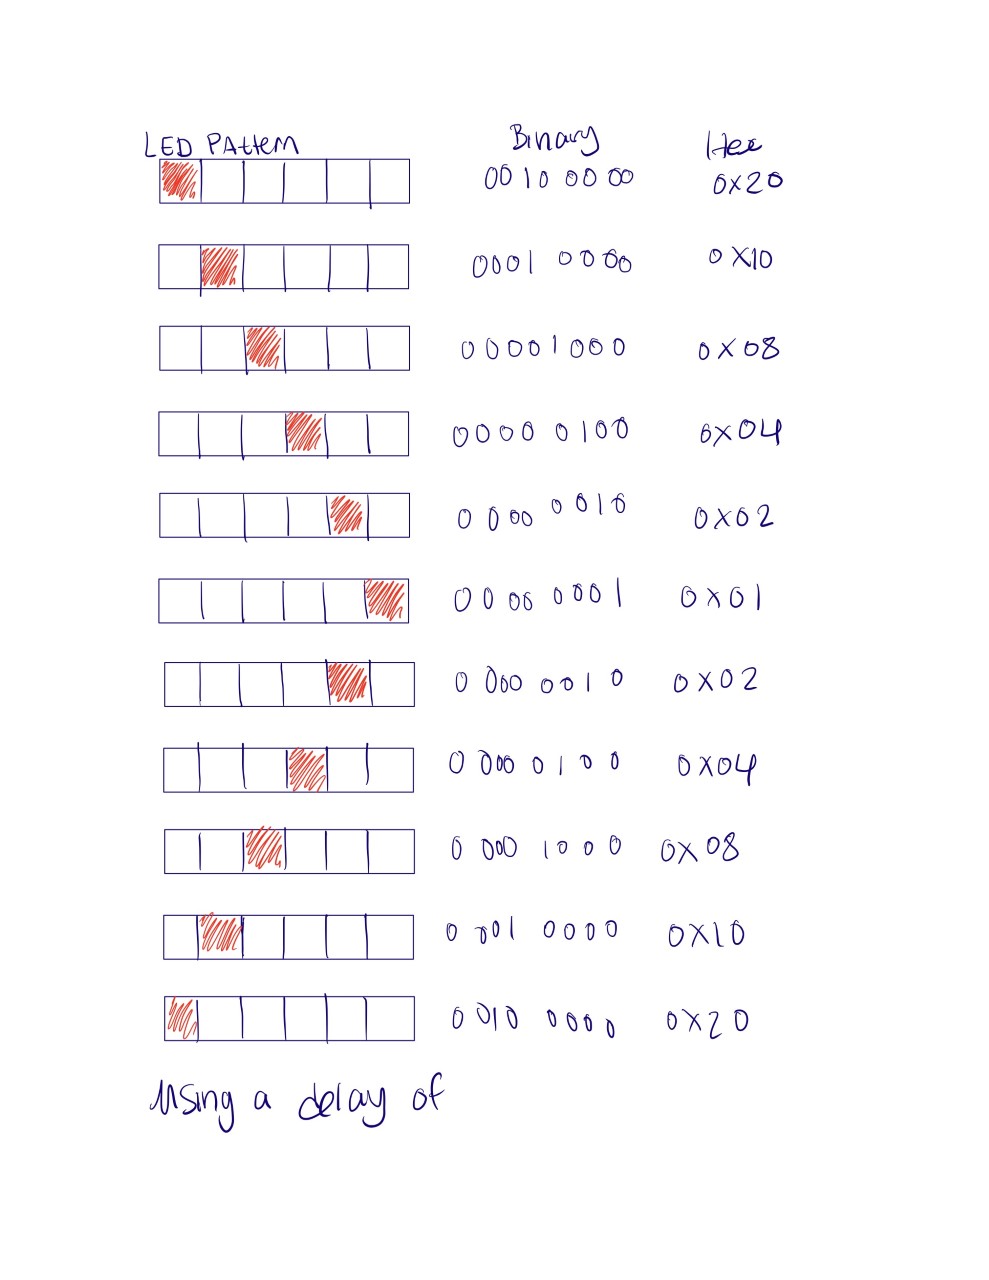 LED PAttern Binary Hex
0010 0000 0x20
0001 0000 0x10
00001000 0x08
0000 0100 0x04
0000 0010 0x02
0000 0001 0x01
0 000 0010 0x02
0 000 0100 0x04
0 000 1000 0x08
0 001 0000 0x10
0 010 0000 0x20
Using a delay of